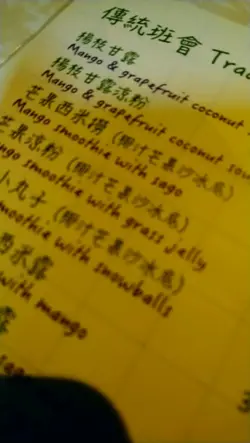 傳統班會 Trad
楊枝甘露
Mango & grapefruit coconut
楊枝甘露涼粉
Mango & grapefruit coconut sou
芒果西米撈 (椰汁芒果沙冰底)
Mango smoothie with sago
芒果涼粉 (椰汁芒果沙冰底)
ngo smoothie with grass jelly
小丸子 (椰汁芒果沙冰底)
moothie with snowballs
西米露
with mango
露
sago